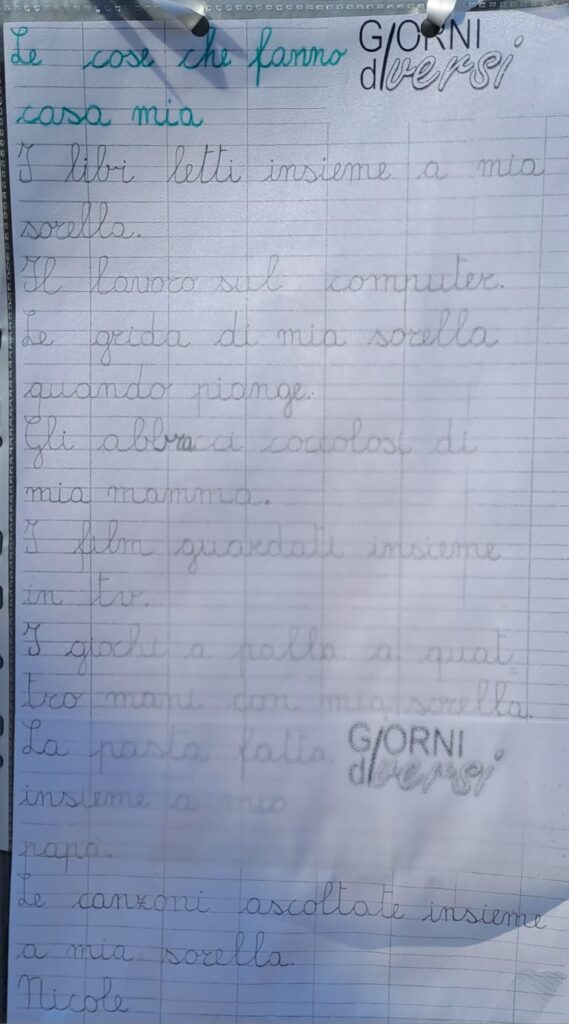 Le cose che fanno
GIORNI
diversi
casa mia
I libri letti insieme a mia
sorella.
Il lavoro sul computer.
Le grida di mia sorella
quando piange.
Gli abbracci coccolosi di
mia mamma.
I film guardati insieme
in tv.
I giochi a palla a quat
tro mani con mia sorella.
La pasta fatta
GIORNI
diversi
insieme a mio
papà.
Le canzoni ascoltate insieme
a mia sorella.
Nicole